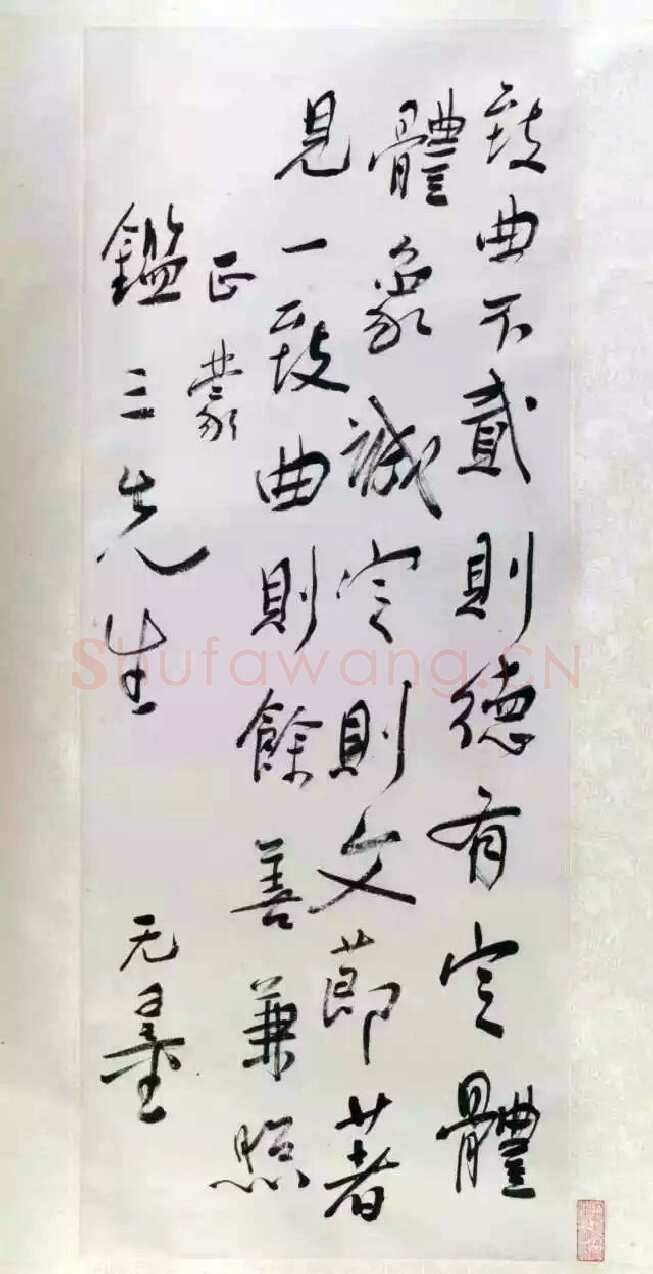 致曲不貳則德有定體
體象誠定則文節著
見一致曲則餘善兼照
正蒙
鑑三先生
无量
Shufawang.CN